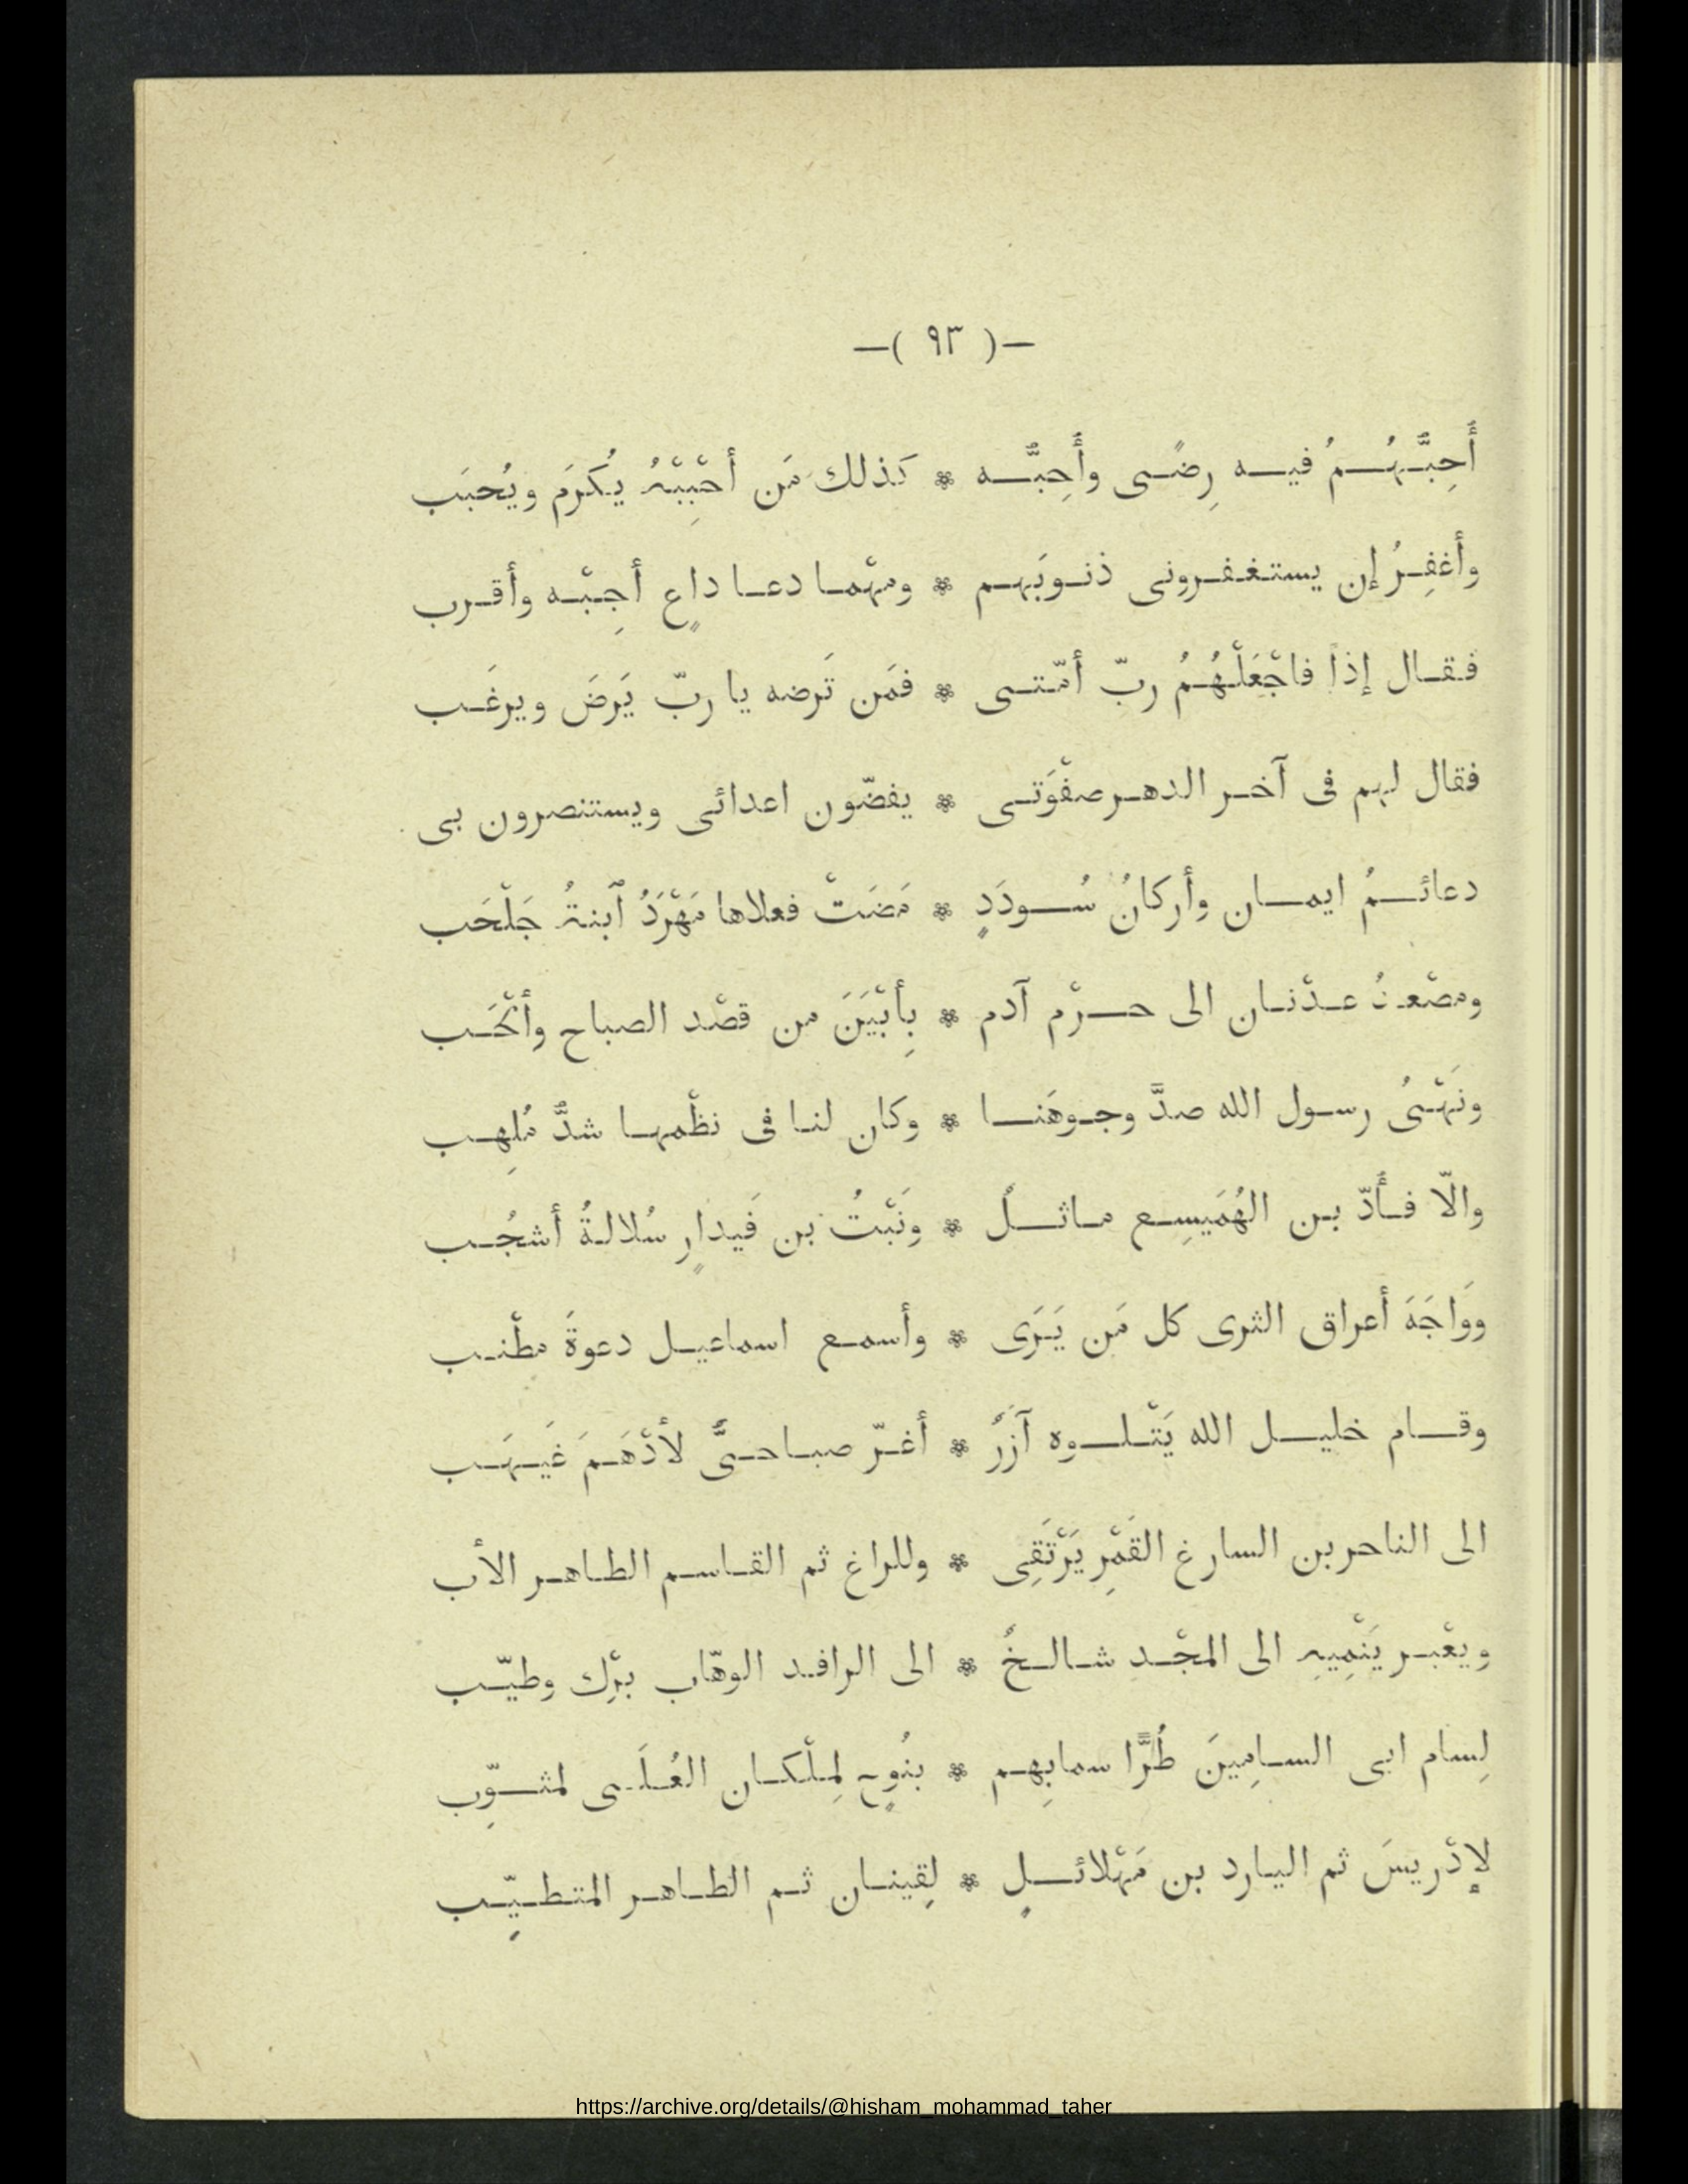 —( ٩٣ )—
أُحِبَّهُمُ فيه رِضًى وأُحِبَّه * كذلك مَن أحْبِبْهُ يُكرَم ويُحبَب
وأغفِرُ إن يستغفرونى ذنوبَهم * ومهْما دعا داعٍ أجِبْه وأقرب
فقال إذاً فاجْعَلْهُمُ ربّ أمّتى * فمَن تَرضه يا ربّ يَرضَ ويرغَب
فقال لهم فى آخر الدهر صفْوَتى * يفضّون اعدائى ويستنصرون بى
دعائمُ ايمان وأركانُ سُودَدٍ * مَضَتْ فعلاها مَهْرَدُ ٱبنةُ جَلْحَب
ومصْعـدُ عدْنان الى حرْم آدم * بِأبْيَنَ من قصْد الصباح وأنْحَب
ونَهْىُ رسول الله صدَّ وجوهَنا * وكان لنا فى نظْمها شدُّ مُلِهب
والّا فأُدّ بن الهُمَيسِع ماثلٌ * ونَبْتُ بن قَيدارٍ سُلالةُ أشجُب
ووَاجَهَ أعراق الثرى كل مَن يَرَى * وأسمع اسماعيل دعوةَ مطْنب
وقام خليل الله يَتْلوه آزَرٌ * أغرّ صباحىٌّ لأدْهَمَ غَيهَب
الى الناحر بن السارغ القَمْرِ يَرْتَقِى * وللراغ ثم القاسم الطاهر الأب
ويعْبر يَنْمِيهِ الى المجْدِ شالخٌ * الى الرافد الوهّاب برْك وطيّب
لِسام ابى السامِينَ طُرًّا سمابِهم * بنُوحٍ لِملْكان العُلَى لمثوِّب
لإدْريسَ ثم اليارد بن مَهْلائلٍ * لِقينان ثم الطاهر المتطيِّب
https://archive.org/details/@hisham_mohammad_taher